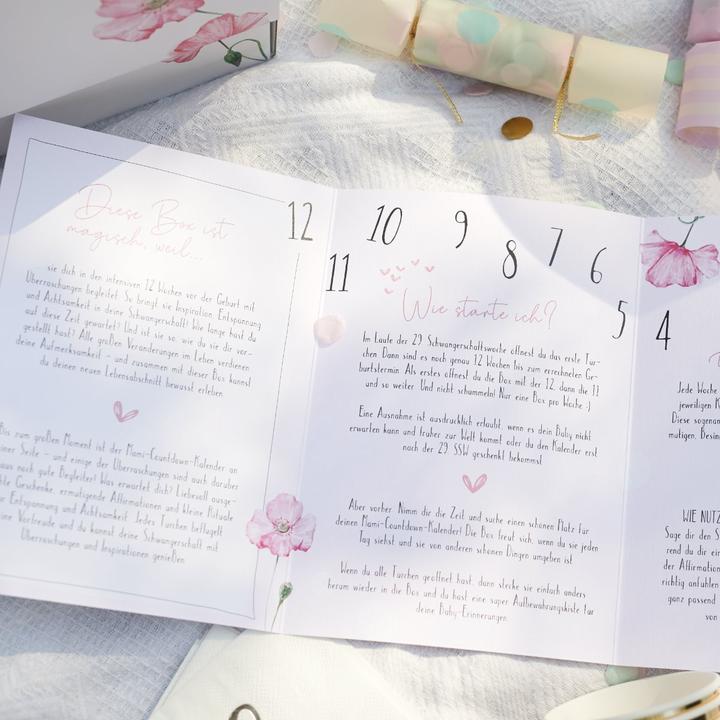 Diese Box ist
magisch, weil...
sie dich in den intensiven 12 Wochen vor der Geburt mit
Überraschungen begleitet. So bringt sie Inspiration, Entspannung
und Achtsamkeit in deine Schwangerschaft! Wie lange hast du
auf diese Zeit gewartet? Und ist sie so, wie du sie dir vor-
gestellt hast? Alle großen Veränderungen im Leben verdienen
deine Aufmerksamkeit - und zusammen mit dieser Box kannst
du deinen neuen Lebensabschnitt bewusst erleben.
Bis zum großen Moment ist der Mami-Countdown-Kalender an
einer Seite - und einige der Überraschungen sind auch darüber
aus noch gute Begleiter! Was erwartet dich? Liebevoll ausge-
Geschenke, ermutigende Affirmationen und kleine Rituale
Entspannung und Achtsamkeit. Jedes Türchen beflügelt
Vorfreude und du kannst deine Schwangerschaft mit
Überraschungen und Inspirationen genießen.
12
11
10
9
8
7
6
5
4
Wie starte ich?
Im Laufe der 29. Schwangerschaftswoche öffnest du das erste Tür-
chen. Dann sind es noch genau 12 Wochen bis zum errechneten Ge-
burtstermin. Als erstes öffnest du die Box mit der 12, dann die 11
und so weiter. Und nicht schummeln! Nur eine Box pro Woche :)
Eine Ausnahme ist ausdrücklich erlaubt, wenn es dein Baby nicht
erwarten kann und früher zur Welt kommt oder du den Kalender erst
nach der 29. SSW geschenkt bekommst.
Aber vorher: Nimm dir die Zeit und suche einen schönen Platz für
deinen Mami-Countdown-Kalender! Die Box freut sich, wenn du sie jeden
Tag siehst und sie von anderen schönen Dingen umgeben ist.
Wenn du alle Türchen geöffnet hast, dann stecke sie einfach anders
herum wieder in die Box und du hast eine super Aufbewahrungskiste für
deine Baby-Erinnerungen.
Jede Woche
jeweiligen
Diese sogenan
mutigen, Besin
WIE NUTZ
Sage dir den S
rend du dir ein
der Affirmation
richtig anfühlen
ganz passend
von